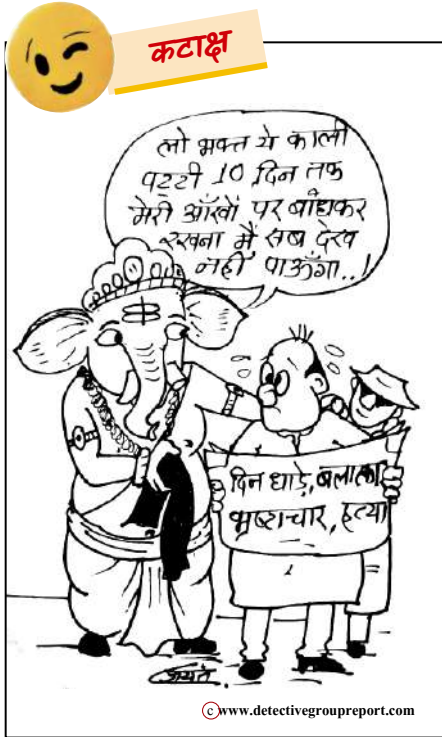 कटाक्ष
लो भक्त ये काली
पट्टी 10 दिन तक
मेरी आँखों पर बांधकर
रखना मैं, सब देख
नहीं पाऊँगा..!
दिन धाड़े, बलात्का
भ्रष्टाचार, हत्या
जयंत
c www.detectivegroupreport.com